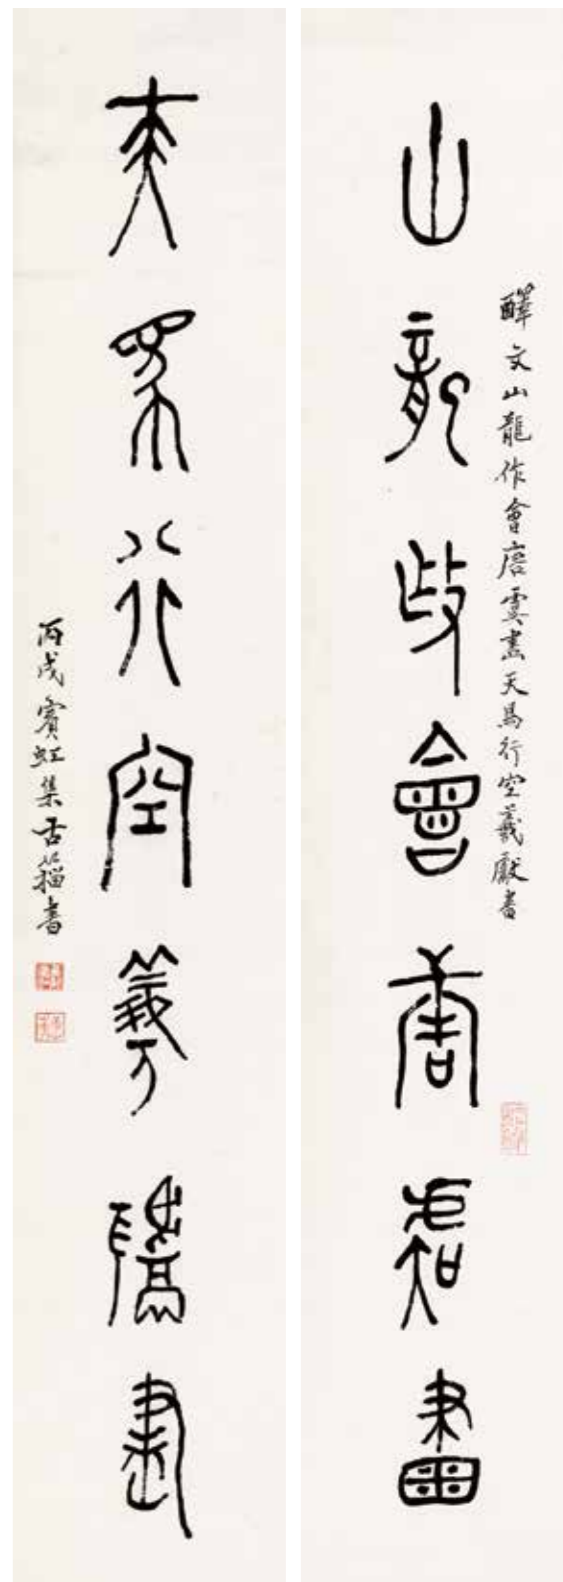 山龍作會唐虞畫
釋文山龍作會唐虞畫天馬行空羲獻書
天馬行空羲獻書
丙戌賓虹集古籀書